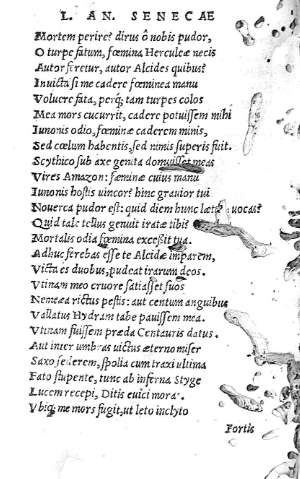 L. AN. SENECAE
Mortem perire? dirus ô nobis pudor,
O turpe fatum, fœmina Herculeæ necis
Autor feretur, autor Alcides quibus?
Inuicta si me cadere fœminea manu
Voluere fata, perq; tam turpes colos
Mea mors cucurrit, cadere potuissem mihi
Iunonis odio, fœminæ caderem minis,
Sed cœlum habentis, sed nimis superis fuit.
Scythico sub axe genita domuisset meas
Vires Amazon: fœminæ cuius manu
Iunonis hostis uincor? hinc grauior tui
Nouerca pudor est: quid diem hunc lætũ uocas?
Quid tale tellus genuit iratæ tibi?
Mortalis odia fœmina excessit tua.
Adhuc ferebas esse te Alcidæ imparem,
Victa es duobus, pudeat irarum deos.
Vtinam meo cruore satiasset suos
Nemeæa rictus pestis: aut centum anguibus
Vallatus Hydram tabe pauissem mea.
Vtinam fuissem præda Centauris datus.
Aut inter umbras uictus æterno miser
Saxo sederem, spolia cum traxi ultima
Fato stupente, tunc ab inferna Styge
Lucem recepi, Ditis euici moras.
Vbiq; me mors fugit, ut leto inclyto
Fortis